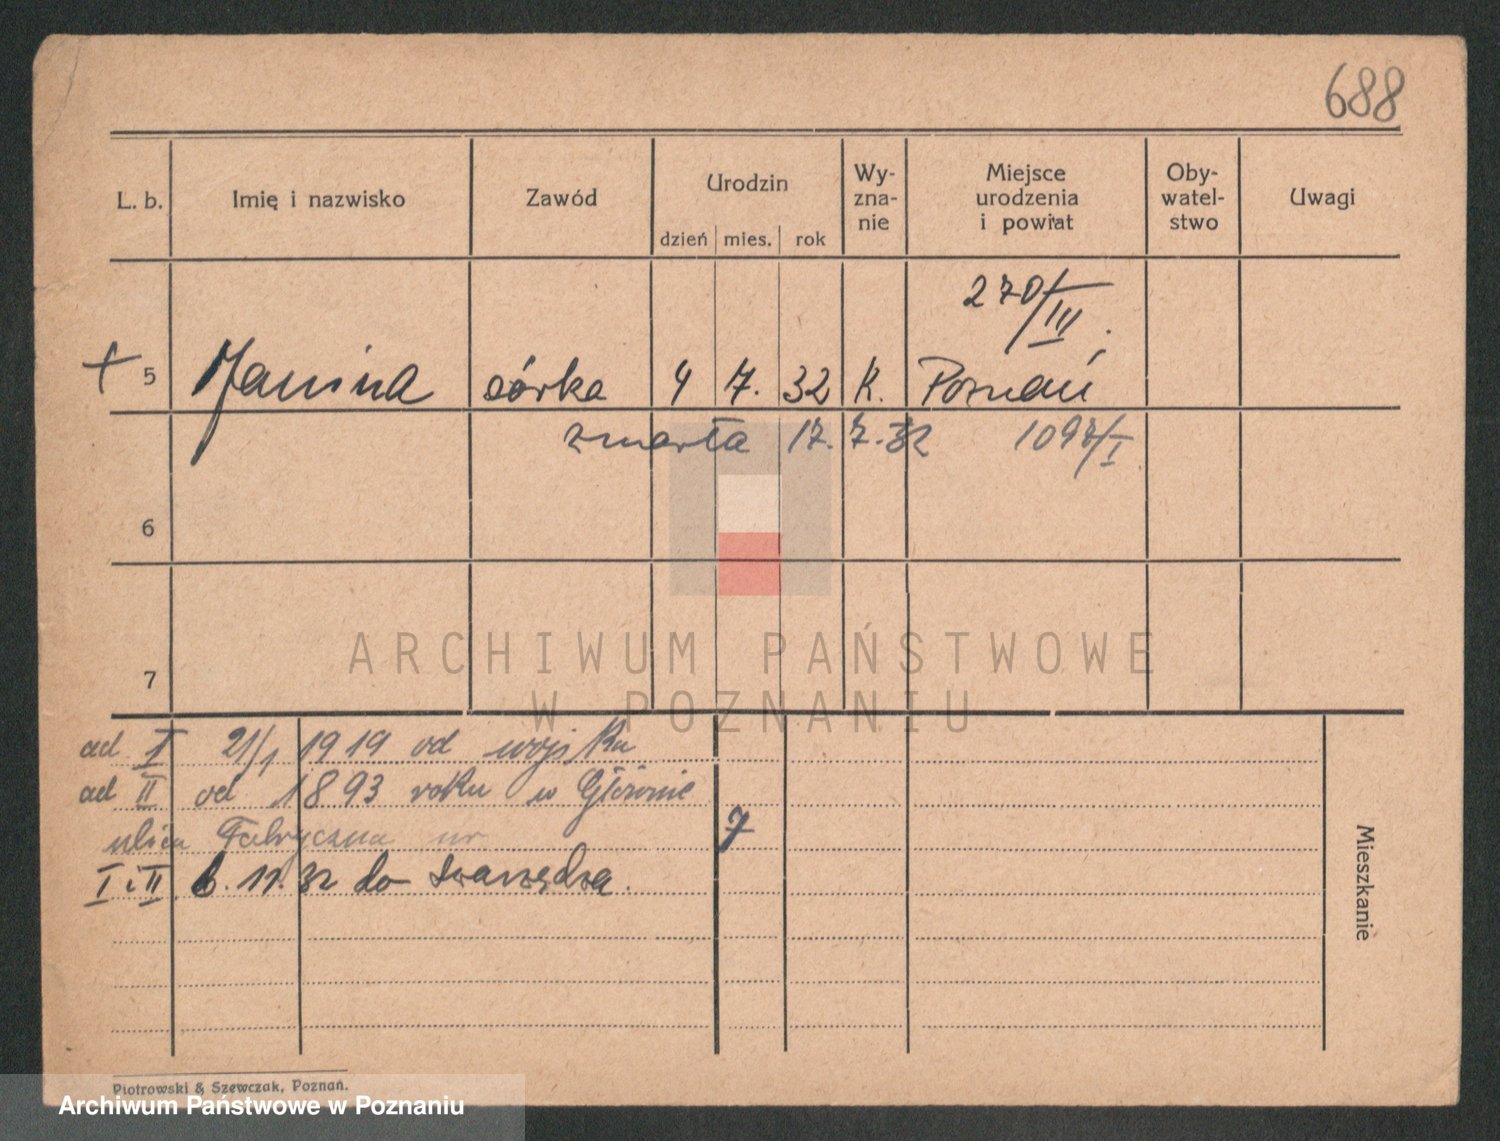 688
L. b. Imię i nazwisko Zawód Urodzin dzień mies. rok Wy-zna-nie Miejsce urodzenia i powiat Oby-watel-stwo Uwagi
270/III.
+ 5 Janina córka 4 7. 32 K. Poznań
zmarła 17. 7. 32 1097/I
6
ARCHIWUM PAŃSTWOWE
7
W POZNANIU
ad I 21/1 1919 od wojska
ad II od 1893 roku w Głównie
ulica Fabryczna nr 7
I i II 6. 11. 32 do
Mieszkanie
Piotrowski & Szewczak, Poznań.
Archiwum Państwowe w Poznaniu